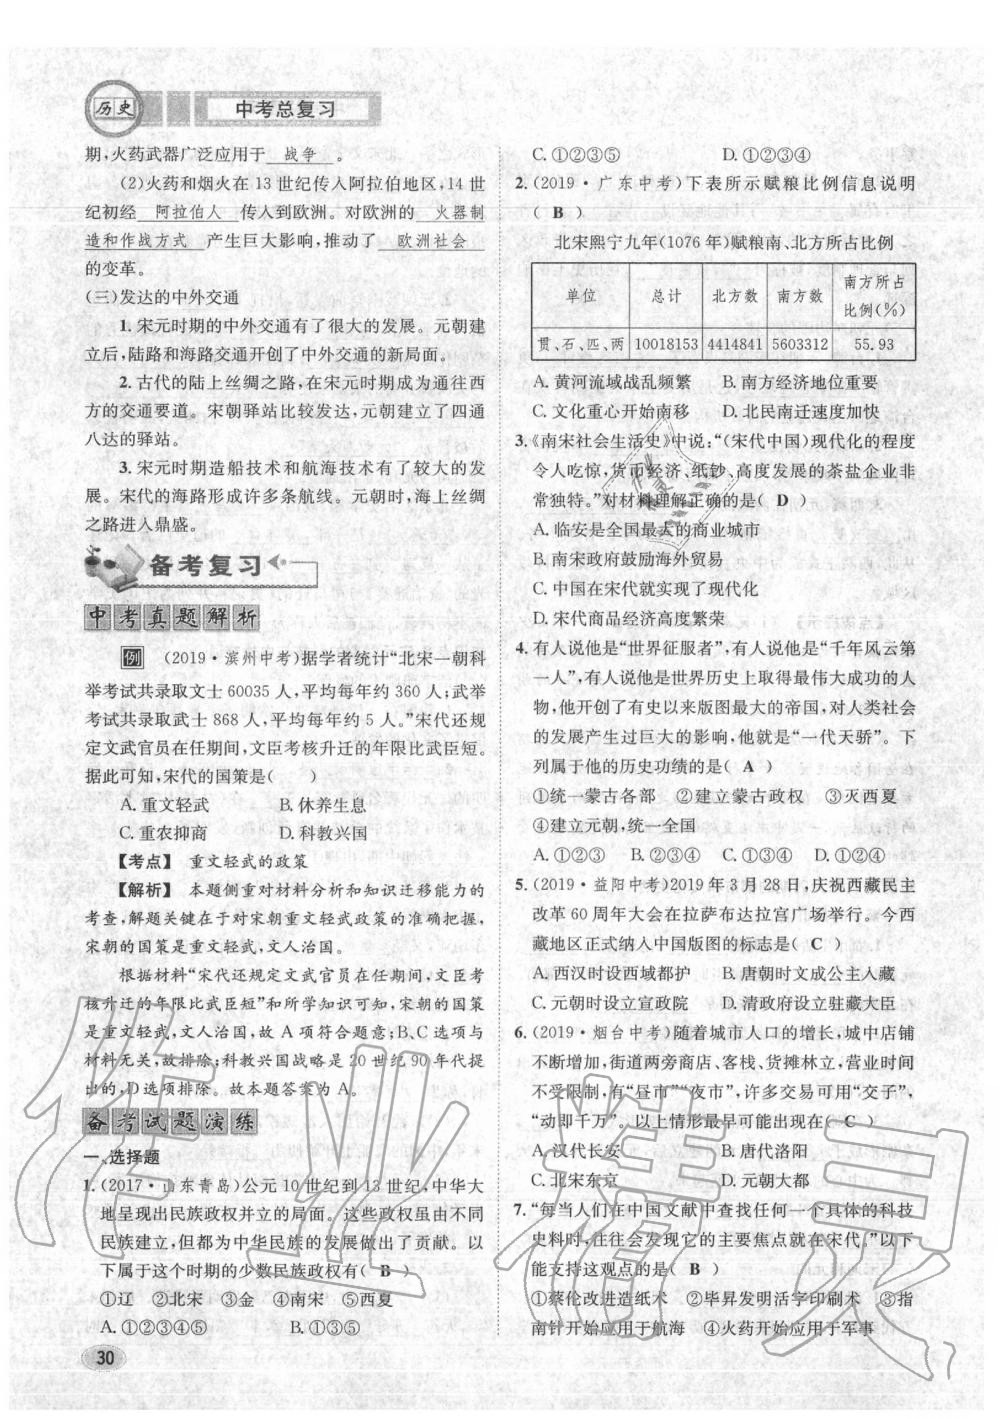 历史
中考总复习
期,火药武器广泛应用于 战争 。
(2)火药和烟火在 13 世纪传入阿拉伯地区,14 世
纪初经 阿拉伯人 传入到欧洲。对欧洲的 火器制
造和作战方式 产生巨大影响,推动了 欧洲社会
的变革。
(三)发达的中外交通
1. 宋元时期的中外交通有了很大的发展。元朝建
立后,陆路和海路交通开创了中外交通的新局面。
2. 古代的陆上丝绸之路,在宋元时期成为通往西
方的交通要道。宋朝驿站比较发达,元朝建立了四通
八达的驿站。
3. 宋元时期造船技术和航海技术有了较大的发
展。宋代的海路形成许多条航线。元朝时,海上丝绸
之路进入鼎盛。
备考复习
中考真题解析
例 (2019·滨州中考)据学者统计“北宋一朝科
举考试共录取文士 60035 人,平均每年约 360 人;武举
考试共录取武士 868 人,平均每年约 5 人。”宋代还规
定文武官员在任期间,文臣考核升迁的年限比武臣短。
据此可知,宋代的国策是(  )
A. 重文轻武 B. 休养生息
C. 重农抑商 D. 科教兴国
【考点】 重文轻武的政策
【解析】 本题侧重对材料分析和知识迁移能力的
考查,解题关键在于对宋朝重文轻武政策的准确把握,
宋朝的国策是重文轻武,文人治国。
根据材料“宋代还规定文武官员在任期间,文臣考
核升迁的年限比武臣短”和所学知识可知,宋朝的国策
是重文轻武,文人治国,故 A 项符合题意;B、C 选项与
材料无关,故排除;科教兴国战略是 20 世纪 90 年代提
出的,D 选项排除。故本题答案为 A。
备考试题演练
一、选择题
1. (2017·山东青岛)公元 10 世纪到 13 世纪,中华大
地呈现出民族政权并立的局面。这些政权虽由不同
民族建立,但都为中华民族的发展做出了贡献。以
下属于这个时期的少数民族政权有( B )
①辽 ②北宋 ③金 ④南宋 ⑤西夏
A. ①②③④⑤ B. ①③⑤
30
C. ①②③⑤ D. ①②③④
2. (2019·广东中考)下表所示赋粮比例信息说明
( B )
北宋熙宁九年(1076 年)赋粮南、北方所占比例
单位 总计 北方数 南方数 南方所占比例(%)
贯、石、匹、两 10018153 4414841 5603312 55.93
A. 黄河流域战乱频繁 B. 南方经济地位重要
C. 文化重心开始南移 D. 北民南迁速度加快
3. 《南宋社会生活史》中说:“(宋代中国)现代化的程度
令人吃惊,货币经济、纸钞、高度发展的茶盐企业非
常独特。”对材料理解正确的是( D )
A. 临安是全国最大的商业城市
B. 南宋政府鼓励海外贸易
C. 中国在宋代就实现了现代化
D. 宋代商品经济高度繁荣
4. 有人说他是“世界征服者”,有人说他是“千年风云第
一人”,有人说他是世界历史上取得最伟大成功的人
物,他开创了有史以来版图最大的帝国,对人类社会
的发展产生过巨大的影响,他就是“一代天骄”。下
列属于他的历史功绩的是( A )
①统一蒙古各部 ②建立蒙古政权 ③灭西夏
④建立元朝,统一全国
A. ①②③ B. ②③④ C. ①③④ D. ①②④
5. (2019·益阳中考)2019 年 3 月 28 日,庆祝西藏民主
改革 60 周年大会在拉萨布达拉宫广场举行。今西
藏地区正式纳入中国版图的标志是( C )
A. 西汉时设西域都护 B. 唐朝时文成公主入藏
C. 元朝时设立宣政院 D. 清政府设立驻藏大臣
6. (2019·烟台中考)随着城市人口的增长,城中店铺
不断增加,街道两旁商店、客栈、货摊林立,营业时间
不受限制,有“昼市”“夜市”,许多交易可用“交子”,
“动即千万”。以上情形最早可能出现在( C )
A. 汉代长安 B. 唐代洛阳
C. 北宋东京 D. 元朝大都
7. “每当人们在中国文献中查找任何一个具体的科技
史料时,往往会发现它的主要焦点就在宋代。”以下
能支持这观点的是( B )
①蔡伦改进造纸术 ②毕昇发明活字印刷术 ③指
南针开始应用于航海 ④火药开始应用于军事
作业精灵